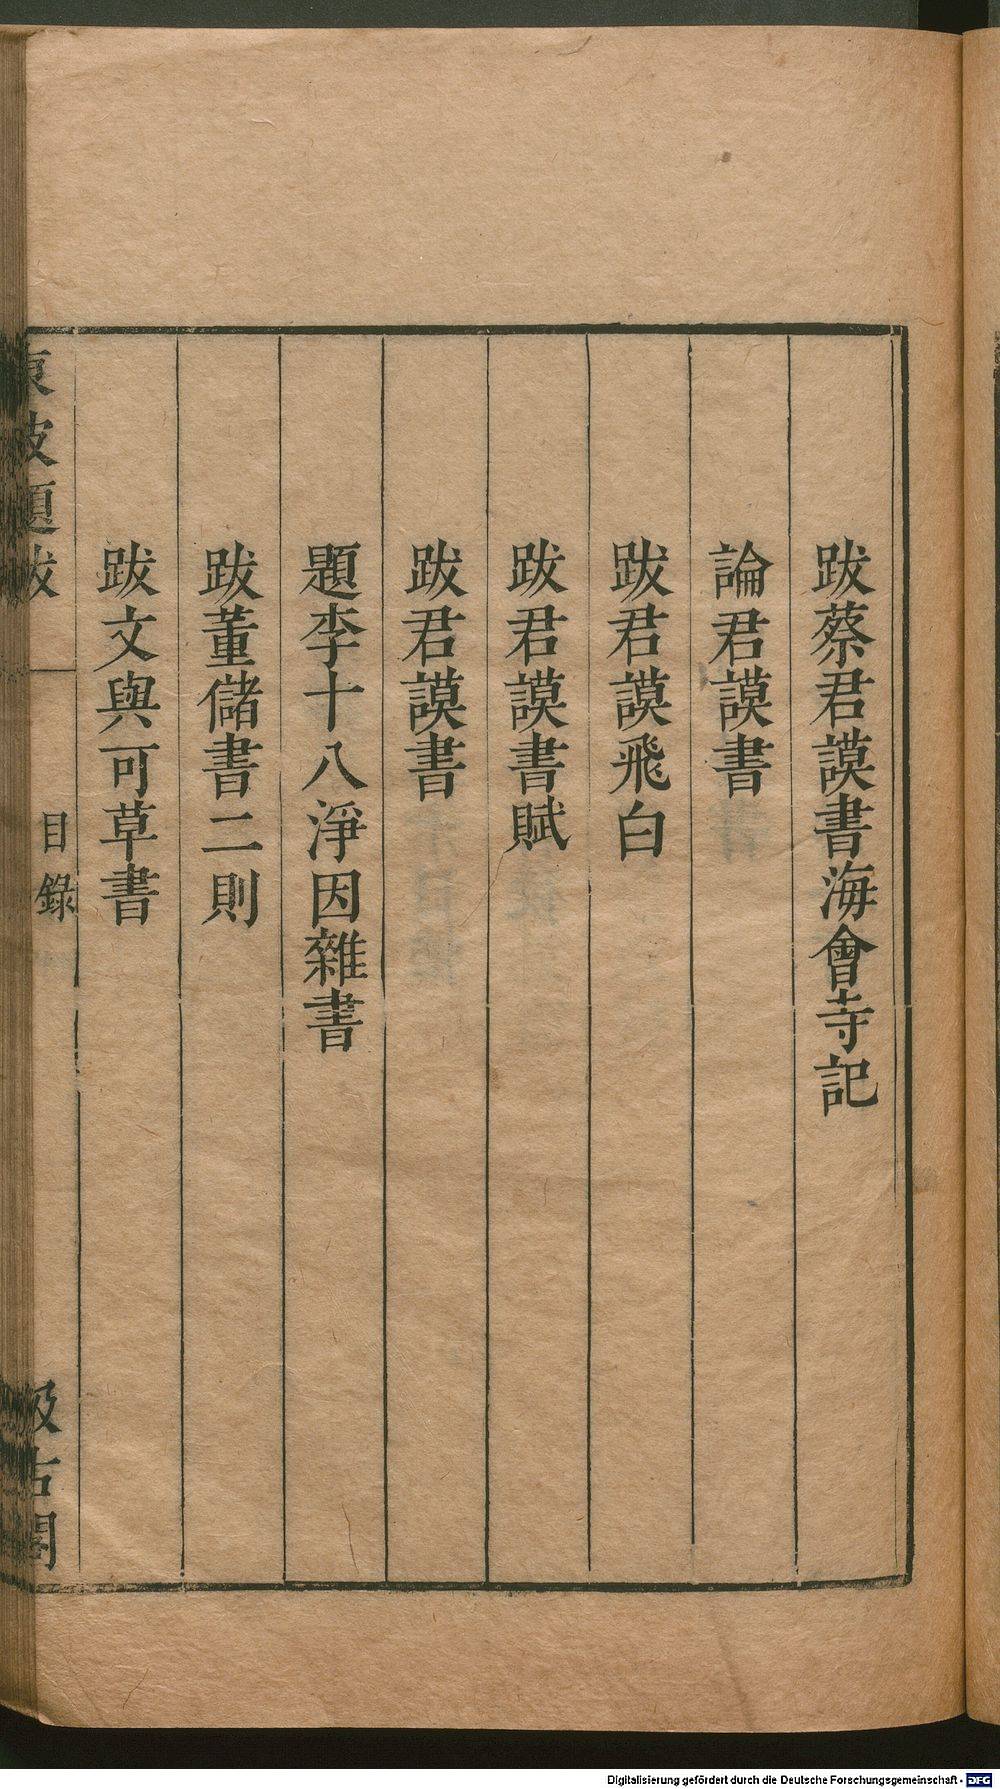 跋蔡君謨書海會寺記
論君謨書
跋君謨飛白
跋君謨書賦
跋君謨書
題李十八淨因雜書
跋董儲書二則
跋文與可草書
東坡題跋
目錄
汲古閣
Digitalisierung gefördert durch die Deutsche Forschungsgemeinschaft - DFG